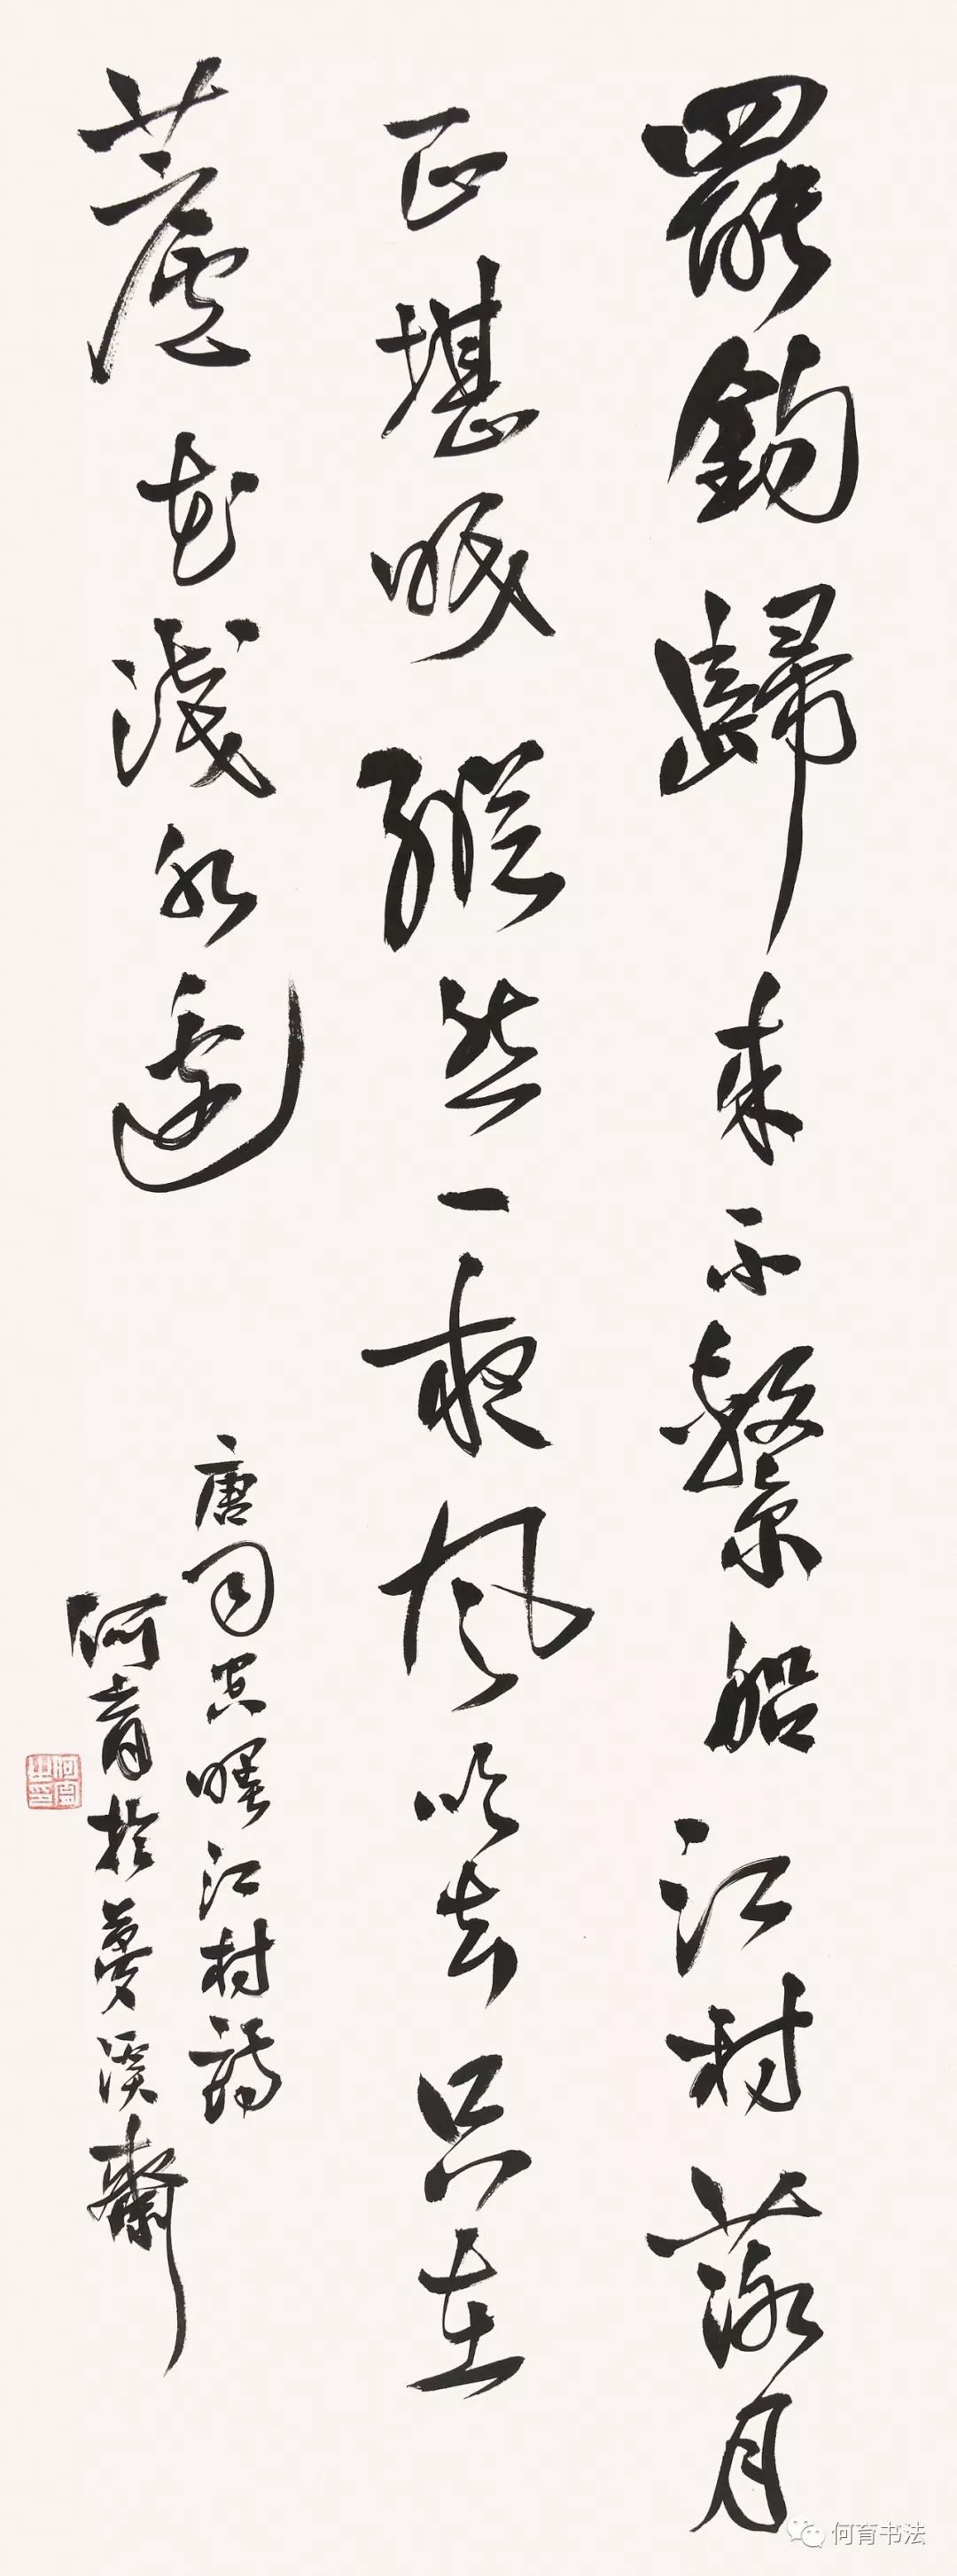 罷釣歸來不繫船江村落月
正堪眠縱然一夜風吹去只在
蘆花淺水邊
唐司空曙江村詩
何育於夢溪齋
何育之印
何育书法